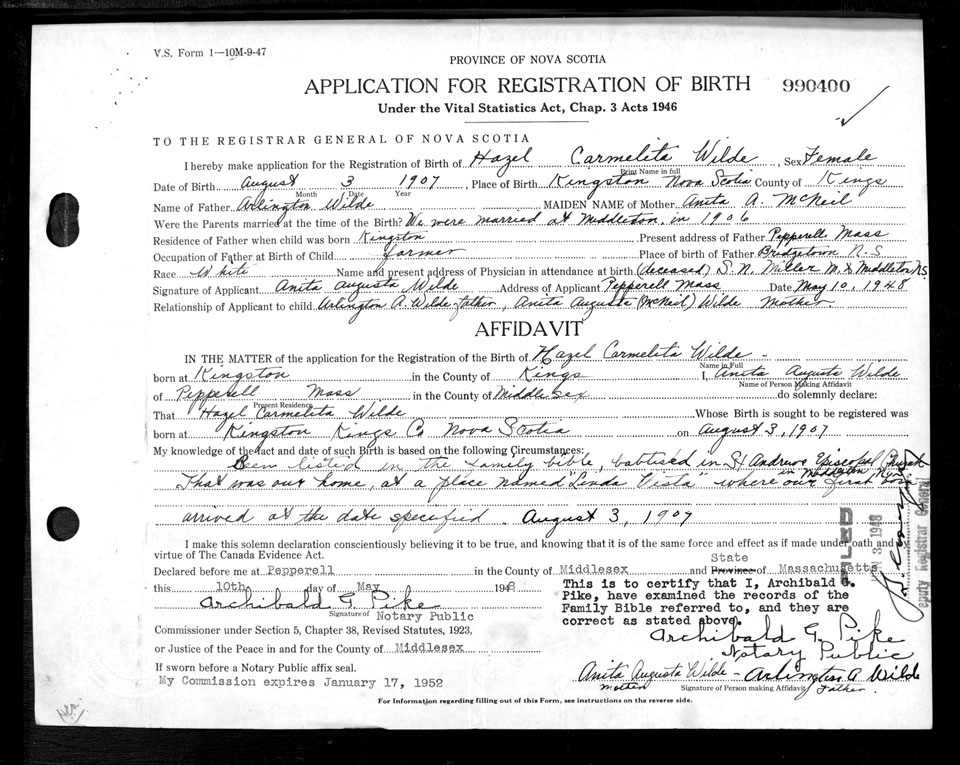 V.S. Form 1—10M-9-47
PROVINCE OF NOVA SCOTIA
APPLICATION FOR REGISTRATION OF BIRTH 990400
Under the Vital Statistics Act, Chap. 3 Acts 1946
TO THE REGISTRAR GENERAL OF NOVA SCOTIA
I hereby make application for the Registration of Birth of Hazel Carmeleta Wilde, Sex Female
Print Name in full
Date of Birth August 3 1907, Place of Birth Kingston Nova Scotia County of Kings
Month Date Year
Name of Father Arlington Wilde MAIDEN NAME of Mother Anita A. McNeil
Were the Parents married at the time of the Birth? We were married at Middleton, in 1906
Residence of Father when child was born Kingston Present address of Father Pepperell Mass
Occupation of Father at Birth of Child farmer Place of birth of Father Bridgetown N.S
Race White Name and present address of Physician in attendance at birth (deceased) S. N. Miller M. Middleton N.S.
Signature of Applicant Anita Augusta Wilde Address of Applicant Pepperell Mass Date May 10, 1948
Relationship of Applicant to child Arlington A. Wilde-father, Anita Augusta (McNeil) Wilde Mother.
AFFIDAVIT
IN THE MATTER of the application for the Registration of the Birth of Hazel Carmeleta Wilde -
Name in Full
born at Kingston in the County of Kings I, Anita Augusta Wilde
Name of Person Making Affidavit
of Pepperell Mass in the County of Middlesex do solemnly declare:
Present Residence
That Hazel Carmeleta Wilde Whose Birth is sought to be registered was
born at Kingston Kings Co Nova Scotia on August 3, 1907
My knowledge of the fact and date of such Birth is based on the following Circumstances:
Been listed in the family bible, babtised in St Andrews Episcopal Church
in Middleton N.S.
That was our home, at a place named "Linda Vista" where our first born
arrived at the date specified. August 3, 1907
I make this solemn declaration conscientiously believing it to be true, and knowing that it is of the same force and effect as if made under oath and by
virtue of The Canada Evidence Act.
State
Declared before me at Pepperell in the County of Middlesex and Province of Massachusetts
this 10th day of May 1948
Archibald G. Pike
Signature of Notary Public
This is to certify that I, Archibald G.
Pike, have examined the records of the
Family Bible referred to, and they are
correct as stated above.
Archibald G. Pike
Notary Public
Commissioner under Section 5, Chapter 38, Revised Statutes, 1923,
or Justice of the Peace in and for the County of Middlesex
If sworn before a Notary Public affix seal.
My Commission expires January 17, 1952
Anita Augusta Wilde - Arlington A Wilde
Mother Signature of Person making Affidavit Father.
For Information regarding filling out of this Form, see instructions on the reverse side.
FILED
1948
Deputy Registrar General